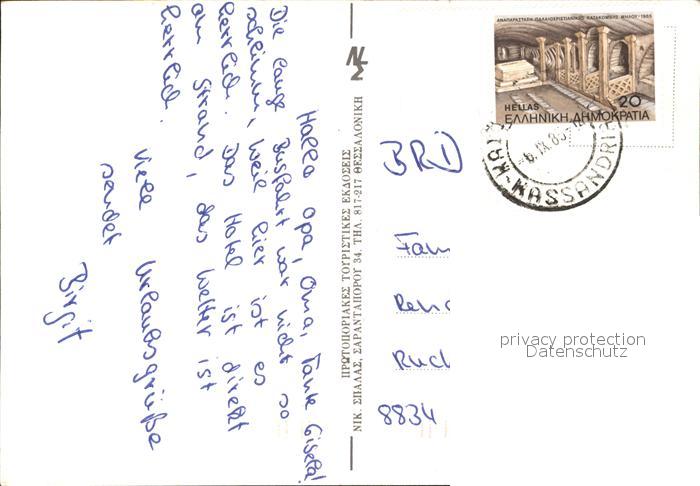 Hallo Opa, Oma, Tante Gisela!
Die lange Busfahrt war nicht so
schlimm, weil hier ist es
herrlich. Das Hotel ist direkt
am Strand, das Wetter ist
herrlich.
Viele Urlaubsgrüße
sendet
Birgit
ΠΡΩΤΟΠΟΡΙΑΚΕΣ ΤΟΥΡΙΣΤΙΚΕΣ ΕΚΔΟΣΕΙΣ
ΝΙΚ. ΣΠΑΛΑΣ, ΣΑΡΑΝΤΑΠΟΡΟΥ 34, ΤΗΛ. 817-217 ΘΕΣΣΑΛΟΝΙΚΗ
ΑΝΑΠΑΡΑΣΤΑΣΗ ΠΑΛΑΙΟΧΡΙΣΤΙΑΝΙΚΗΣ ΚΑΤΑΚΟΜΒΗΣ ΜΗΛΟΥ • 1985
HELLAS 20
ΕΛΛΗΝΙΚΗ ΔΗΜΟΚΡΑΤΙΑ
KASSANDRIA
BRD
Fam
Ruch
8834
privacy protection
Datenschutz